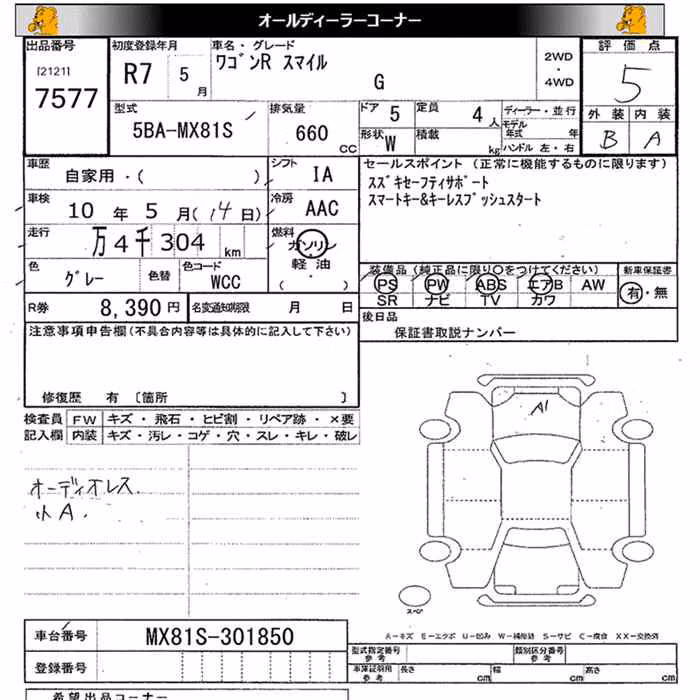 オールディーラーコーナー
出品番号
[2121]
7577
初度登録年月
R7 5月
車名・グレード
ワゴンR スマイル
G
2WD
・
4WD
評価点
5
外装 内装
B A
型式
5BA-MX81S
排気量
660 CC
ドア 5
定員 4人
ディーラー・並行
形状 W
積載 kg
モデル年式 年
ハンドル 左・右
車歴
自家用・( )
シフト
IA
セールスポイント (正常に機能するものに限ります)
スズキセーフティサポート
スマートキー&キーレスプッシュスタート
車検
10年 5月(14日)
冷房
AAC
走行
万4千304 km
燃料
ガソリン
軽油
( )
色
グレー
色替
色コード
WCC
装備品 (純正品に限り○をつけてください)
PS PW ABS エアB AW
SR ナビ TV カワ
新車保証書
有・無
R券 8,390円
名変通知期限 月 日
後日品
保証書取説ナンバー
注意事項申告欄(不具合内容等は具体的に記入して下さい)
修復歴 有 〔箇所 〕
検査員 FW キズ・飛石・ヒビ割・リペア跡・×要
記入欄 内装 キズ・汚レ・コゲ・穴・スレ・キレ・破レ
A1
オーディオレス.
小A.
スペア
A-キズ E-エクボ U-凹み W-補修跡 S-サビ C-腐食 XX-交換済
車台番号
MX81S-301850
登録番号
型式指定番号
参考
類別区分番号
参考
車庫証明用
参考
長さ cm 幅 cm 高さ cm
希望出品コーナー